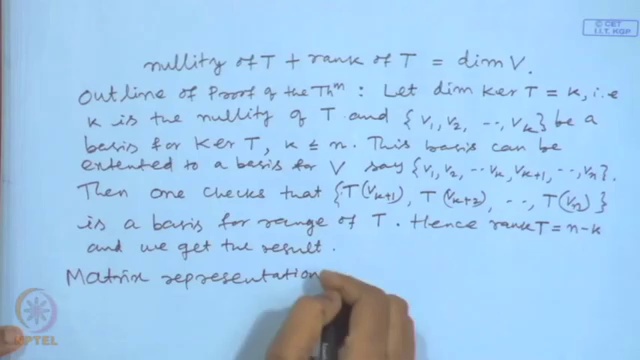 © CET
I.I.T. KGP
nullity of T + rank of T = dim V.
Outline of Proof of the Thm : Let dim Ker T = k, i.e
k is the nullity of T and {v₁, v₂, ..., vₖ} be a
basis for Ker T, k ≤ n. This basis can be
extented to a basis for V say {v₁, v₂, ... vₖ, vₖ₊₁, ..., vₙ}.
Then one checks that {T(vₖ₊₁), T(vₖ₊₂), ..., T(vₙ)}
is a basis for range of T. Hence rank T = n-k
and we get the result.
Matrix representation
NPTEL